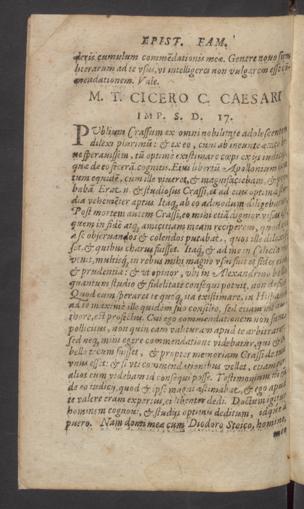 EPIST. FAM.
deris cumulum commēdationis meæ. Genere nouo sum
literarum ad te vsus, vt intelligeres non vulgarem esse cō-
mendationem. Vale.
M. T. CICERO C. CAESARI
IMP. S. D. 17.
PVblium Crassum ex omni nobilitate adolescentem
dilexi plurimū: & ex eo, cum ab ineunte ætate bene
speravissem, tū optime existimare cœpi ex ijs iudicijs,
quæ de eo feceras cognitis. Eius libertū Apollonium iam
tum equidē, cum ille viueret, & magni faciebam, & pro-
babā. Erat n. & studiosus Crassi, & ad eius optima stu-
dia vehemēter aptus. Itaq; ab eo admodum diligebatur.
Post mortem autem Crassi, eo mihi etiā dignior visus est,
quem in fidē atq; amicitiam meam reciperem, quod eos
à se obseruandos & colendos putabat, quos ille dilexis-
set, & quibus charus fuisset. Itaq; & ad me in Ciliciā
venit, multisq; in rebus mihi magno vsui fuit et fides eius
& prudentia: & vt opinor, tibi in Alexandrino bello,
quantum studio & fidelitate consequi potuit, non defuit.
Quod cum speraret te quoq; ita existimare, in Hispaniā
ad te maximè ille quidem suo consilio, sed etiam me auc-
tore, est profectus. Cui ego commendationem non sum
pollicitus, non quin eam valituram apud te arbitrarer:
sed neq; mihi egere commendatione videbatur, qui & in
bello tecum fuisset, & propter memoriam Crassi de tuis
vnus esset: & si vti commendationibus vellet, etiam per
alios eum videbam id consequi posse. Testimonium mei
de eo iudicij, quod & ipse magni æstimabat, & ego apud
te valere eram expertus, ei libenter dedi. Doctum igitur
hominem cognoui, & studijs optimis deditum, idq; à
puero. Nam domi meæ cum Diodoro Stoico, homine,